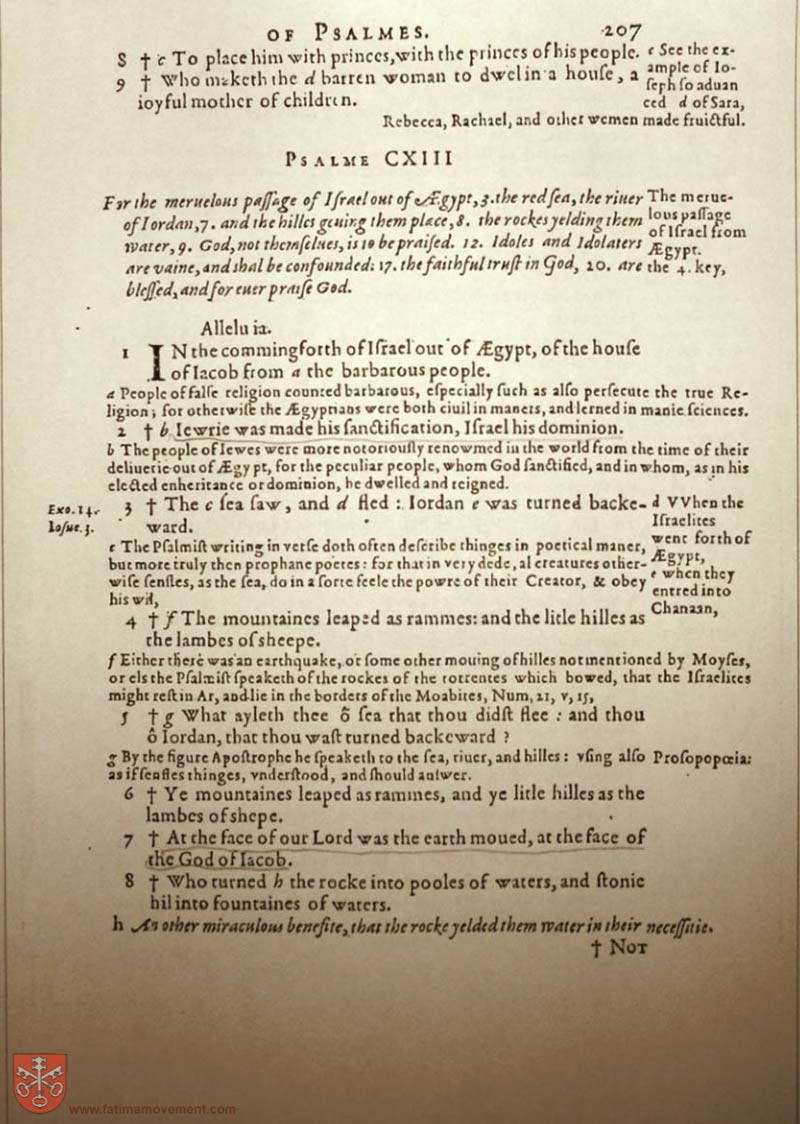 OF PSALMES. 207
8 † c To place him with princes, with the princes of his people.
9 † Who maketh the d barren woman to dwel in a houſe, a
ioyful mother of children.
c See the ex-
ample of Io-
ſeph ſo aduan
ced d of Sara,
Rebecca, Rachael, and other wemen made fruictful.
PSALME CXIII
For the meruelous paſſage of Iſrael out of Ægypt, 3. the red ſea, the riuer
of Iordan, 7. and the hilles geuing them place, 8. the rockes yelding them
water, 9. God, not themſelues, is to be praiſed. 12. Idoles and Idolaters
are vaine, and shal be confounded: 17. the faithful truſt in God, 20. are
bleſſed, and for euer praiſe God.
The merue-
lous paſſage
of Iſrael from
Ægypt.
the 4. key,
Alleluia.
1 IN the comming forth of Iſrael out of Ægypt, of the houſe
of Iacob from a the barbarous people.
a People of falſe religion counted barbarous, eſpecially ſuch as alſo perſecute the true Re-
ligion; for otherwiſe the Ægyptians were both ciuil in maners, and lerned in manie ſciences.
2 † b Iewrie was made his ſanctification, Iſrael his dominion.
b The people of Iewes were more notoriouſly renowmed in the world from the time of their
deliuerie out of Ægypt, for the peculiar people, whom God ſanctified, and in whom, as in his
elected enheritance or dominion, he dwelled and reigned.
Exo. 14.
Ioſue. 3.
3 † The c ſea ſaw, and d fled : Iordan e was turned backe-
ward.
d VVhen the
Iſraelites
went forth of
Ægypt,
e when they
entred into
Chanaan,
c The Pſalmiſt writing in verſe doth often deſcribe thinges in poetical maner,
but more truly then prophane poetes: for that in very dede, al creatures other-
wiſe ſenſles, as the ſea, do in a ſorte feele the powre of their Creator, & obey
his wil,
4 † f The mountaines leaped as rammes: and the litle hilles as
the lambes of sheepe.
f Either there was an earthquake, or ſome other mouing of hilles not mentioned by Moyſes,
or els the Pſalmiſt ſpeaketh of the rockes of the torrentes which bowed, that the Iſraelites
might reſt in Ar, and lie in the borders of the Moabites, Num, 21, v, 15,
5 † g What ayleth thee ô ſea that thou didſt flee : and thou
ô Iordan, that thou waſt turned backeward ?
g By the figure Apoſtrophe he ſpeaketh to the ſea, riuer, and hilles : vſing alſo Proſopopœia:
as if ſenſles thinges, vnderſtood, and ſhould anſwer.
6 † Ye mountaines leaped as rammes, and ye litle hilles as the
lambes of shepe.
7 † At the face of our Lord was the earth moued, at the face of
the God of Iacob.
8 † Who turned h the rocke into pooles of waters, and ſtonie
hil into fountaines of waters.
h An other miraculous benefite, that the rocke yelded them water in their neceſſitie.
† NOT
www.fatimamovement.com